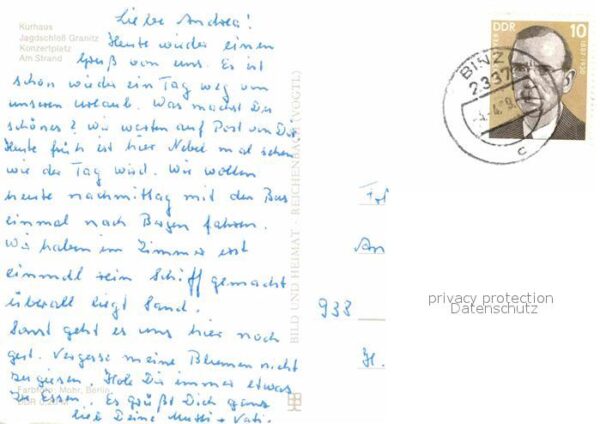 Kurhaus
Jagdschloß Granitz
Konzertplatz
Am Strand
Liebe Andrea!
Heute wieder einen
Gruß von uns. Es ist
schon wieder ein Tag weg von
unserem Urlaub. Was machst Du
schönes? Wir warten auf Post von Dir.
Heute früh ist hier Nebel mal sehen
wie der Tag wird. Wir wollen
heute nachmittag mit dem Bus
einmal nach Bergen fahren.
Wir haben im Zimmer erst
einmal rein Schiff gemacht
überall liegt Sand.
Sonst geht es uns hier noch
gut. Vergesse meine Blumen nicht
zu giesen. Hole Dir immer etwas
zu Essen. Es grüßt Dich ganz
lieb Deine Mutti + Vati.
Farbfoto: Mohr, Berlin
BILD UND HEIMAT · REICHENBACH (VOGTL)
DDR
10
BINZ
2337
c
938
An
privacy protection
Datenschutz